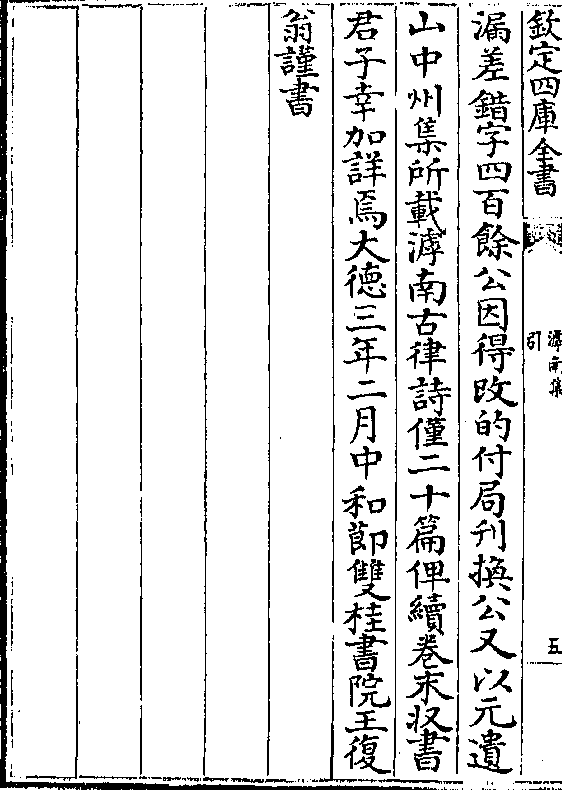 欽定四庫全書
滹南集
引
五
漏差錯字四百餘公因得改的付局刋換公又以元遺
山中州集所載滹南古律詩僅二十篇俾續卷末収書
君子幸加詳焉大徳三年二月中和節雙桂書院王復
翁謹書